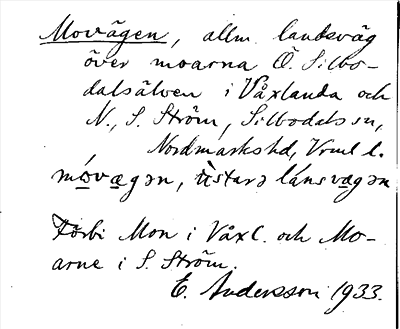 Movägen, allm. landsväg
över moarna Ö. Silbo-
dalsälven i Våxlanda och
N., S. Ström, Silbodals sn,
Nordmarks hd, Vrml l.
móvægən, ústarə lánsvægən
Förbi Mon i Våxl. och Mo-
arne i S. Ström.
E. Andersson 1933.